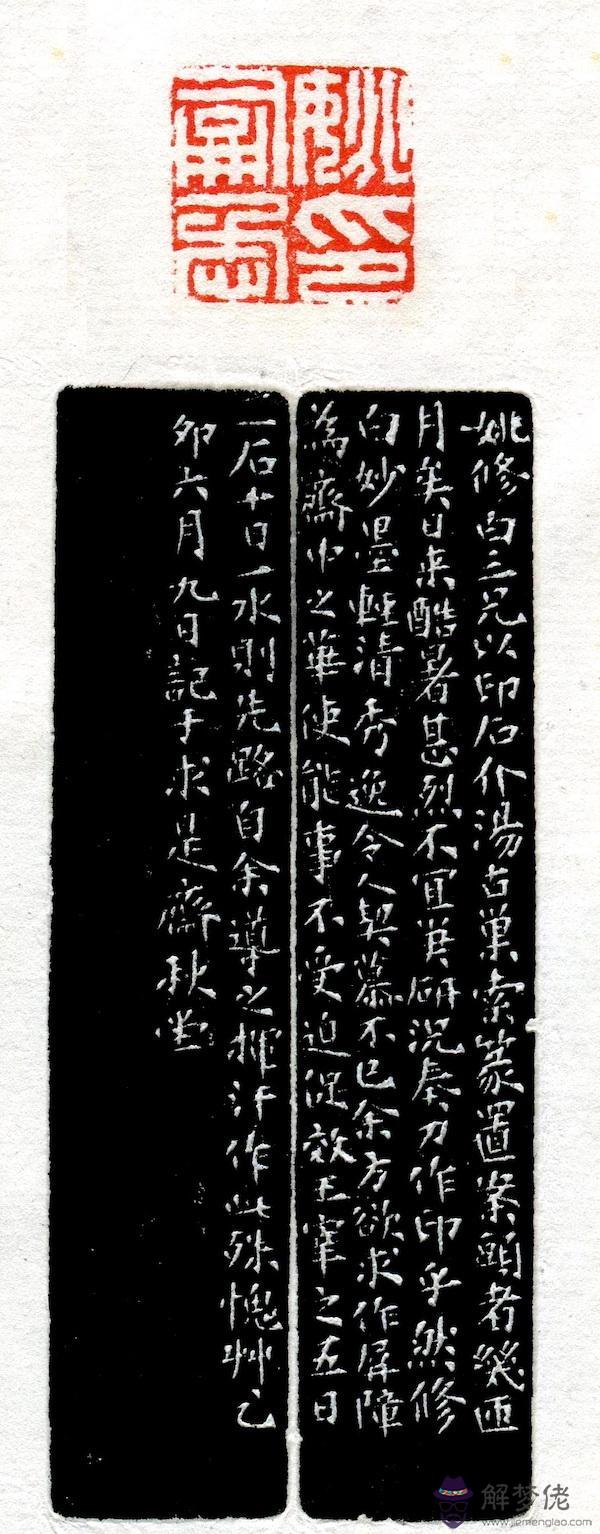 姚印
姚修白三兄以印石介湯古巢索篆置案頭者幾匝
月矣日來酷暑甚烈不宜筆研況奏刀作印乎然修
白妙墨輕清秀逸令人契慕不已余方欲求作屏障
為齋中之華使能事不受迫促效王宰之五日
一石十日一水則先路自余導之揮汗作此殊愧艸乙
卯六月九日記于求是齋秋堂
解梦佬
www.jiemenglao.com